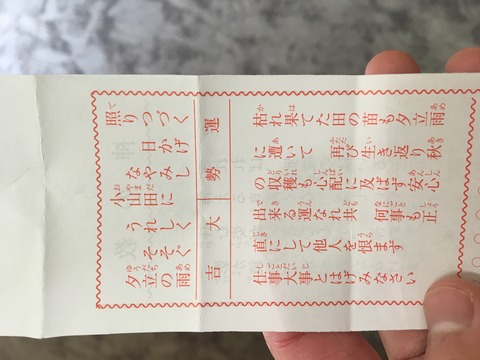 照りつづく
日かげなやみし
小山田に
うれしくそそぐ
夕立の雨
運勢 大吉
枯れ果てた田の苗も夕立雨
に遭いて 再び生き返り秋
の収穫も心配に及ばず安心
出来る運なれ共 何事も正
直にして他人を恨まず
仕事大事とはげみなさい